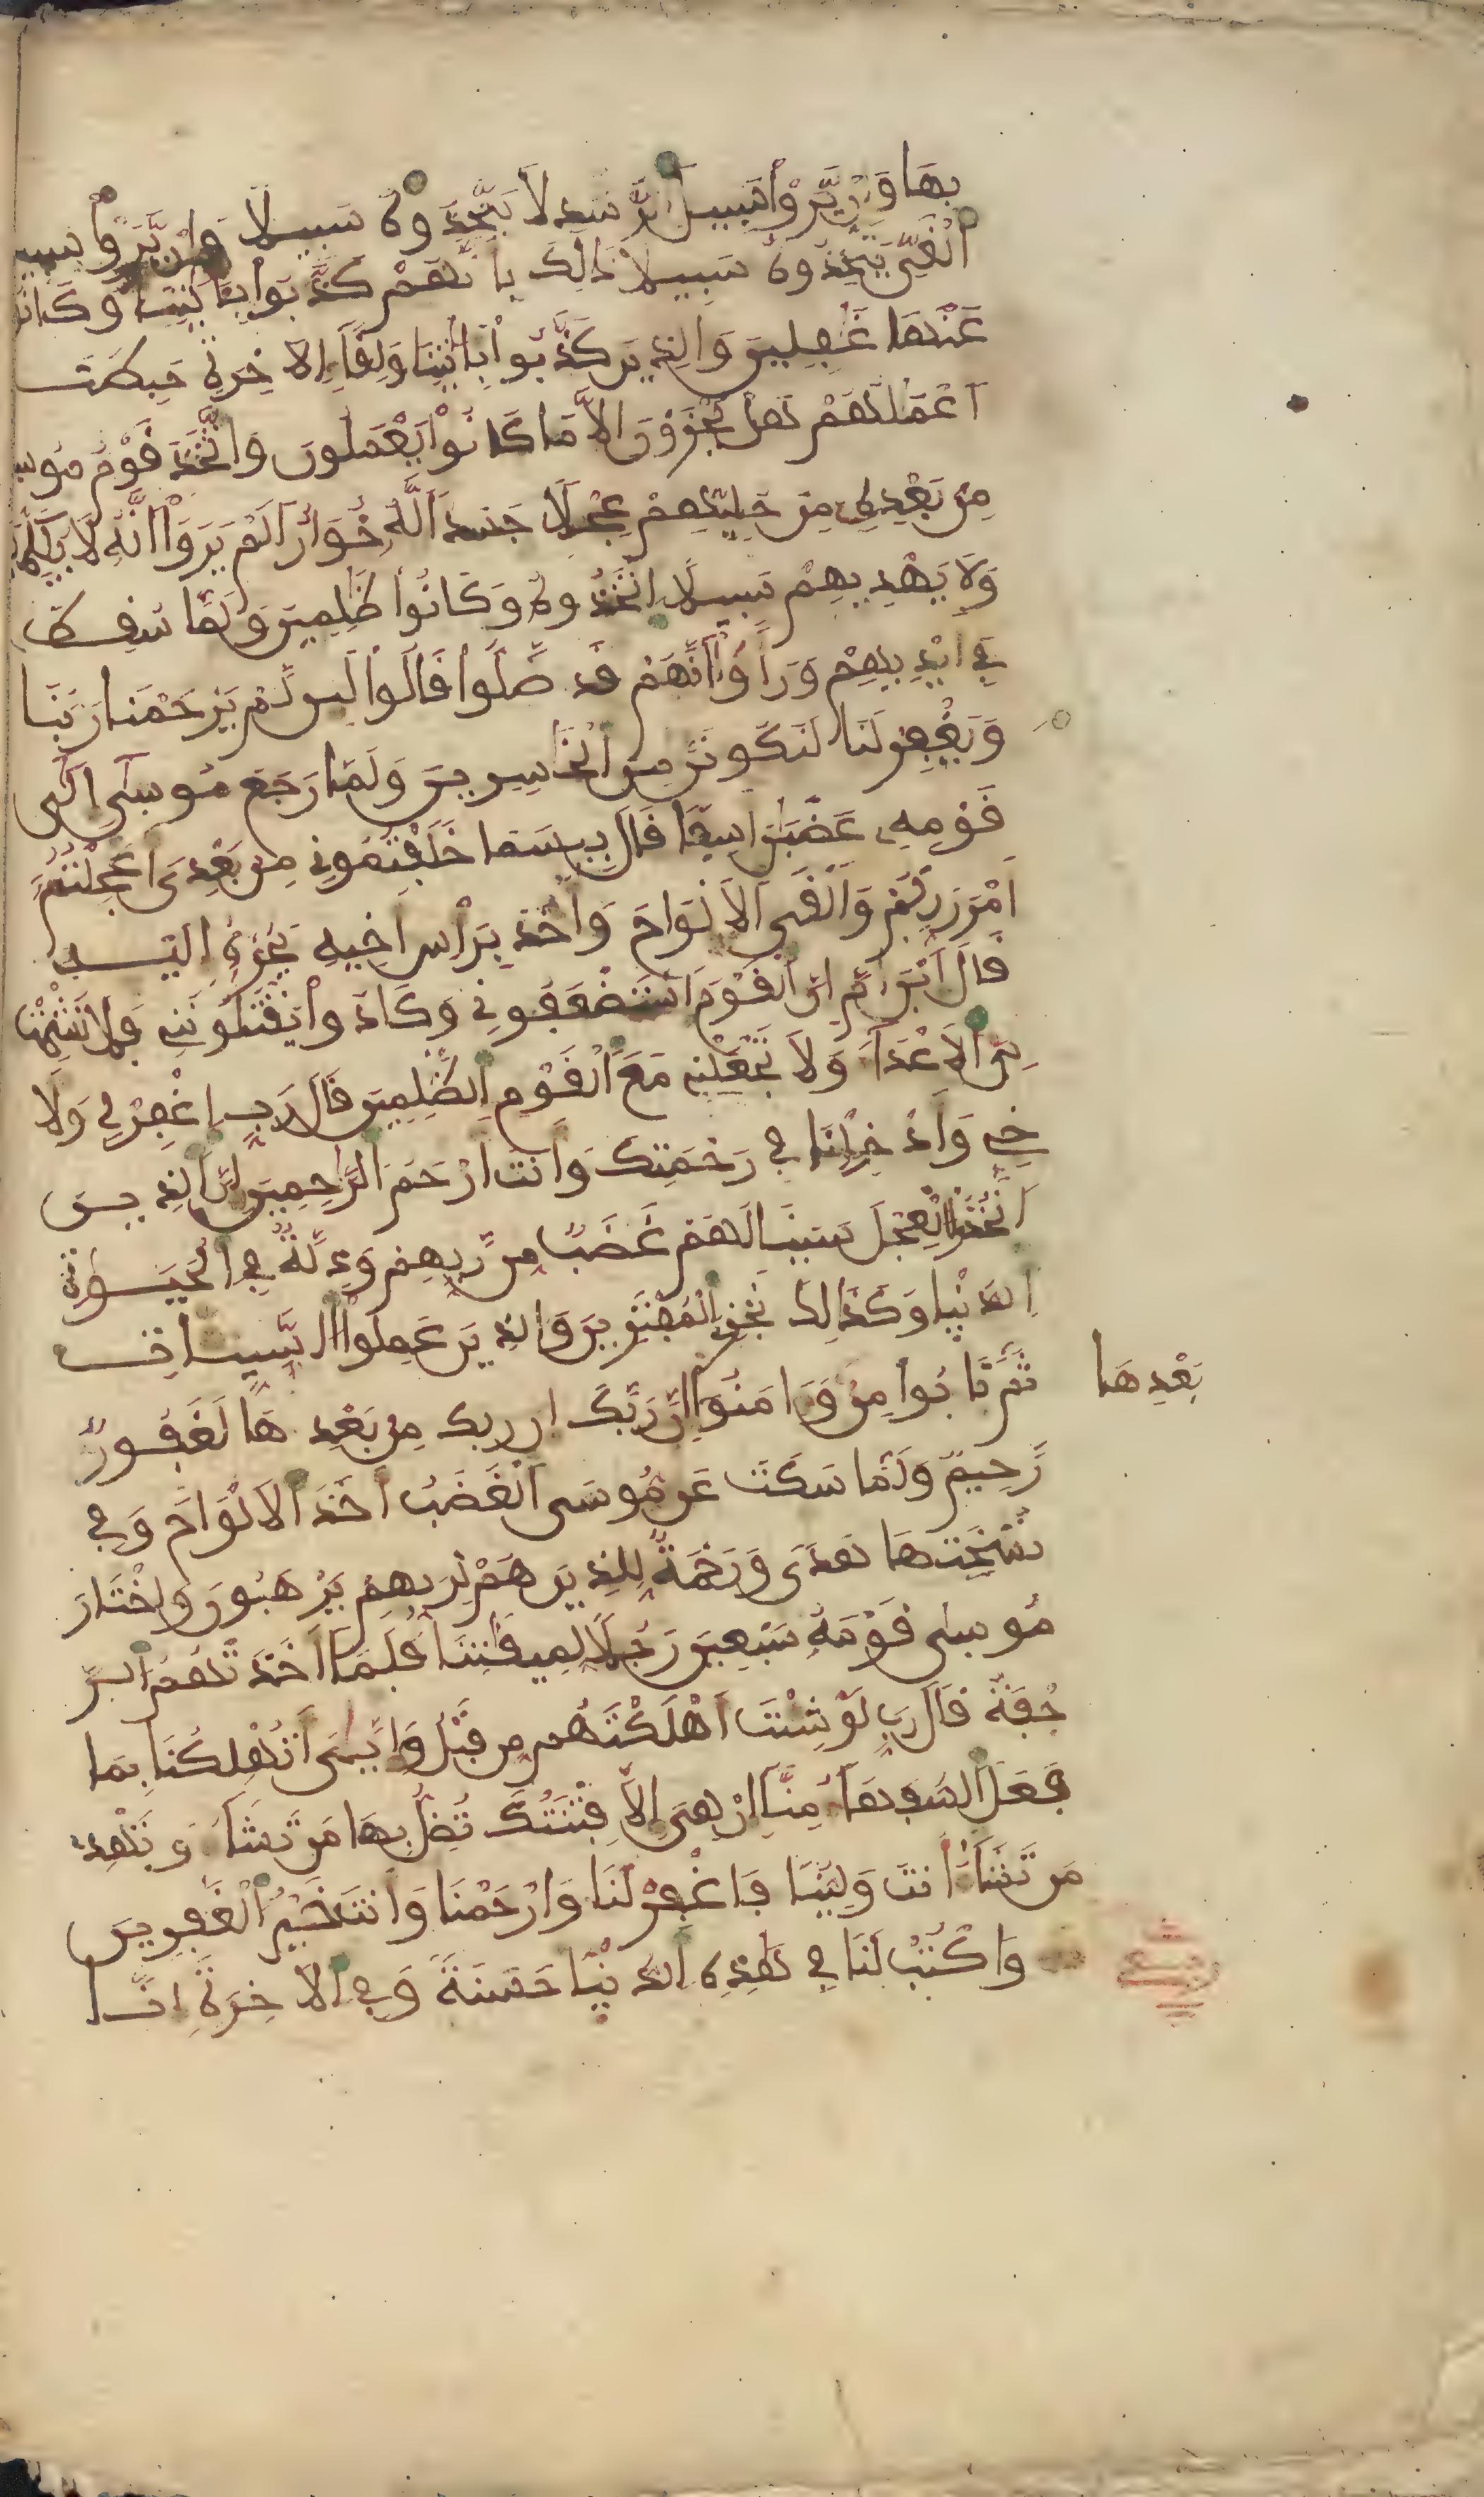 بِهَا وَإِنْ يَّرَوْا سَبِيلَ الرُّشْدِ لَا يَتَّخِذُوهُ سَبِيلًا وَإِنْ يَّرَوْا سبيـ
اَلْغَيِّ يَتَّخِذُوهُ سَبِيلًا ذَالِكَ بِأَنَّهُمْ كَذَّبُوا بِـَٔايَٰتِنَا وَكَانُوا
عَنْهَا غَٰفِلِينَ وَالذِينَ كَذَّبُوا بِـَٔايَٰتِنَا وَلِقَآءِ الَاخِرَةِ حَبِطَتَ
اَعْمَٰلُهُمْ هَلْ يُجْزَوْنَ إِلَّا مَا كَانُوا يَعْمَلُونَ وَاتَّخَذَ قَوْمُ مُوسـ
مِنْ بَعْدِهِ مِنْ حُلِيِّهِمْ عِجْلًا جَسَدًا لَّهُ خُوَارٌ اَلَمْ يَرَوَا اَنَّهُ لَا يُكَلِّمُـ
وَلَا يَهْدِيهِمْ سَبِيلًا اتَّخَذُوهُ وَكَانُوا ظَٰلِمِينَ وَلَمَّا سُقِطَ
فِي أَيْدِيهِمْ وَرَأَوَا اَنَّهُمْ قَد ضَّلُّوا قَالُوا لَئِن لَّمْ يَرْحَمْنَا رَبُّنَا
وَيَغْفِرْ لَنَا لَنَكُونَنَّ مِنَ الْخَاسِرِينَ وَلَمَّا رَجَعَ مُوسَىٰ إِلَىٰ
قَوْمِهِ غَضْبَٰنَ أَسِفًا قَالَ بِيسَمَا خَلَفْتُمُونِي مِنْ بَعْدِيَ أَعَجِلْتُمُ
أَمْرَ رَبِّكُمْ وَأَلْقَى الَالْوَاحَ وَأَخَذَ بِرَأْسِ أَخِيهِ يَجُرُّهُ إِلَيْهِ
قَالَ اَبْنَ أُمَّ إِنَّ الْقَوْمَ اسْتَضْعَفُونِي وَكَادُوا يَقْتُلُونَنِي فَلَا تُشْمِتْ
بِيَ الَاعْدَآءَ وَلَا تَجْعَلْنِي مَعَ الْقَوْمِ الظَّٰلِمِينَ قَالَ رَبِّ اغْفِرْ لِي وَلَا
خِي وَأَدْخِلْنَا فِي رَحْمَتِكَ وَأَنتَ أَرْحَمُ الرَّٰحِمِينَ إِنَّ الذِينَ
اَتَّخَذُوا الْعِجْلَ سَيَنَالُهُمْ غَضَبٌ مِّن رَّبِّهِمْ وَذِلَّةٌ فِي الْحَيَوٰةِ
اِلدُّنْيَا وَكَذَالِكَ نَجْزِي الْمُفْتَرِينَ وَالذِينَ عَمِلُوا السَّيِّئَاتِ
ثُمَّ تَابُوا مِنْ وَءَامَنُوا إِنَّ رَبَّكَ ان ربك مِنْ بَعْدِهَا لَغَفُورٌ بَعْدِهَا
رَّحِيمٌ وَلَمَّا سَكَتَ عَن مُّوسَى الْغَضَبُ أَخَذَ الَالْوَاحَ وَفِي
نُسْخَتِهَا هُدًى وَرَحْمَةٌ لِّلذِينَ هُمْ لِرَبِّهِمْ يَرْهَبُونَ وَاخْتَارَ
مُوسَىٰ قَوْمَهُ سَبْعِينَ رَجُلًا لِّمِيقَٰتِنَا فَلَمَّا أَخَذَتْهُمُ الرَّ
جْفَةُ قَالَ رَبِّ لَوْ شِئْتَ أَهْلَكْتَهُم مِّن قَبْلُ وَإِيَّٰيَ أَتُهْلِكُنَا بِمَا
فَعَلَ السُّفَهَآءُ مِنَّا إِنْ هِيَ إِلَّا فِتْنَتُكَ تُضِلُّ بِهَا مَن تَشَآءُ وَتَهْدِي
مَن تَشَآءُ أَنتَ وَلِيُّنَا فَاغْفِرْ لَنَا وَارْحَمْنَا وَأَنتَ خَيْرُ الْغَٰفِرِينَ
وَاكْتُبْ لَنَا فِي هَٰذِهِ الدُّنْيَا حَسَنَةً وَفِي الَاخِرَةِ إِنَّا